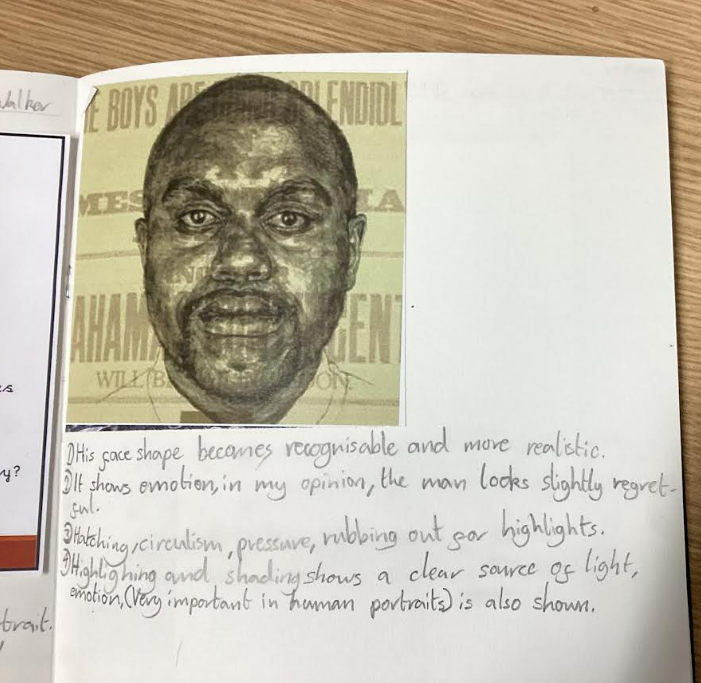 Walker
E BOYS ARE SPLENDIDL
MES IA
AHAM GENT
WILL B ON
es
y?
trait.
1)His face shape becomes recognisable and more realistic.
2)It shows emotion, in my opinion, the man looks slightly regret-
ful.
3)Hatching, circulism, pressure, rubbing out for highlights.
4)Highlighing and shading shows a clear source of light,
emotion, (Very important in human portraits) is also shown.